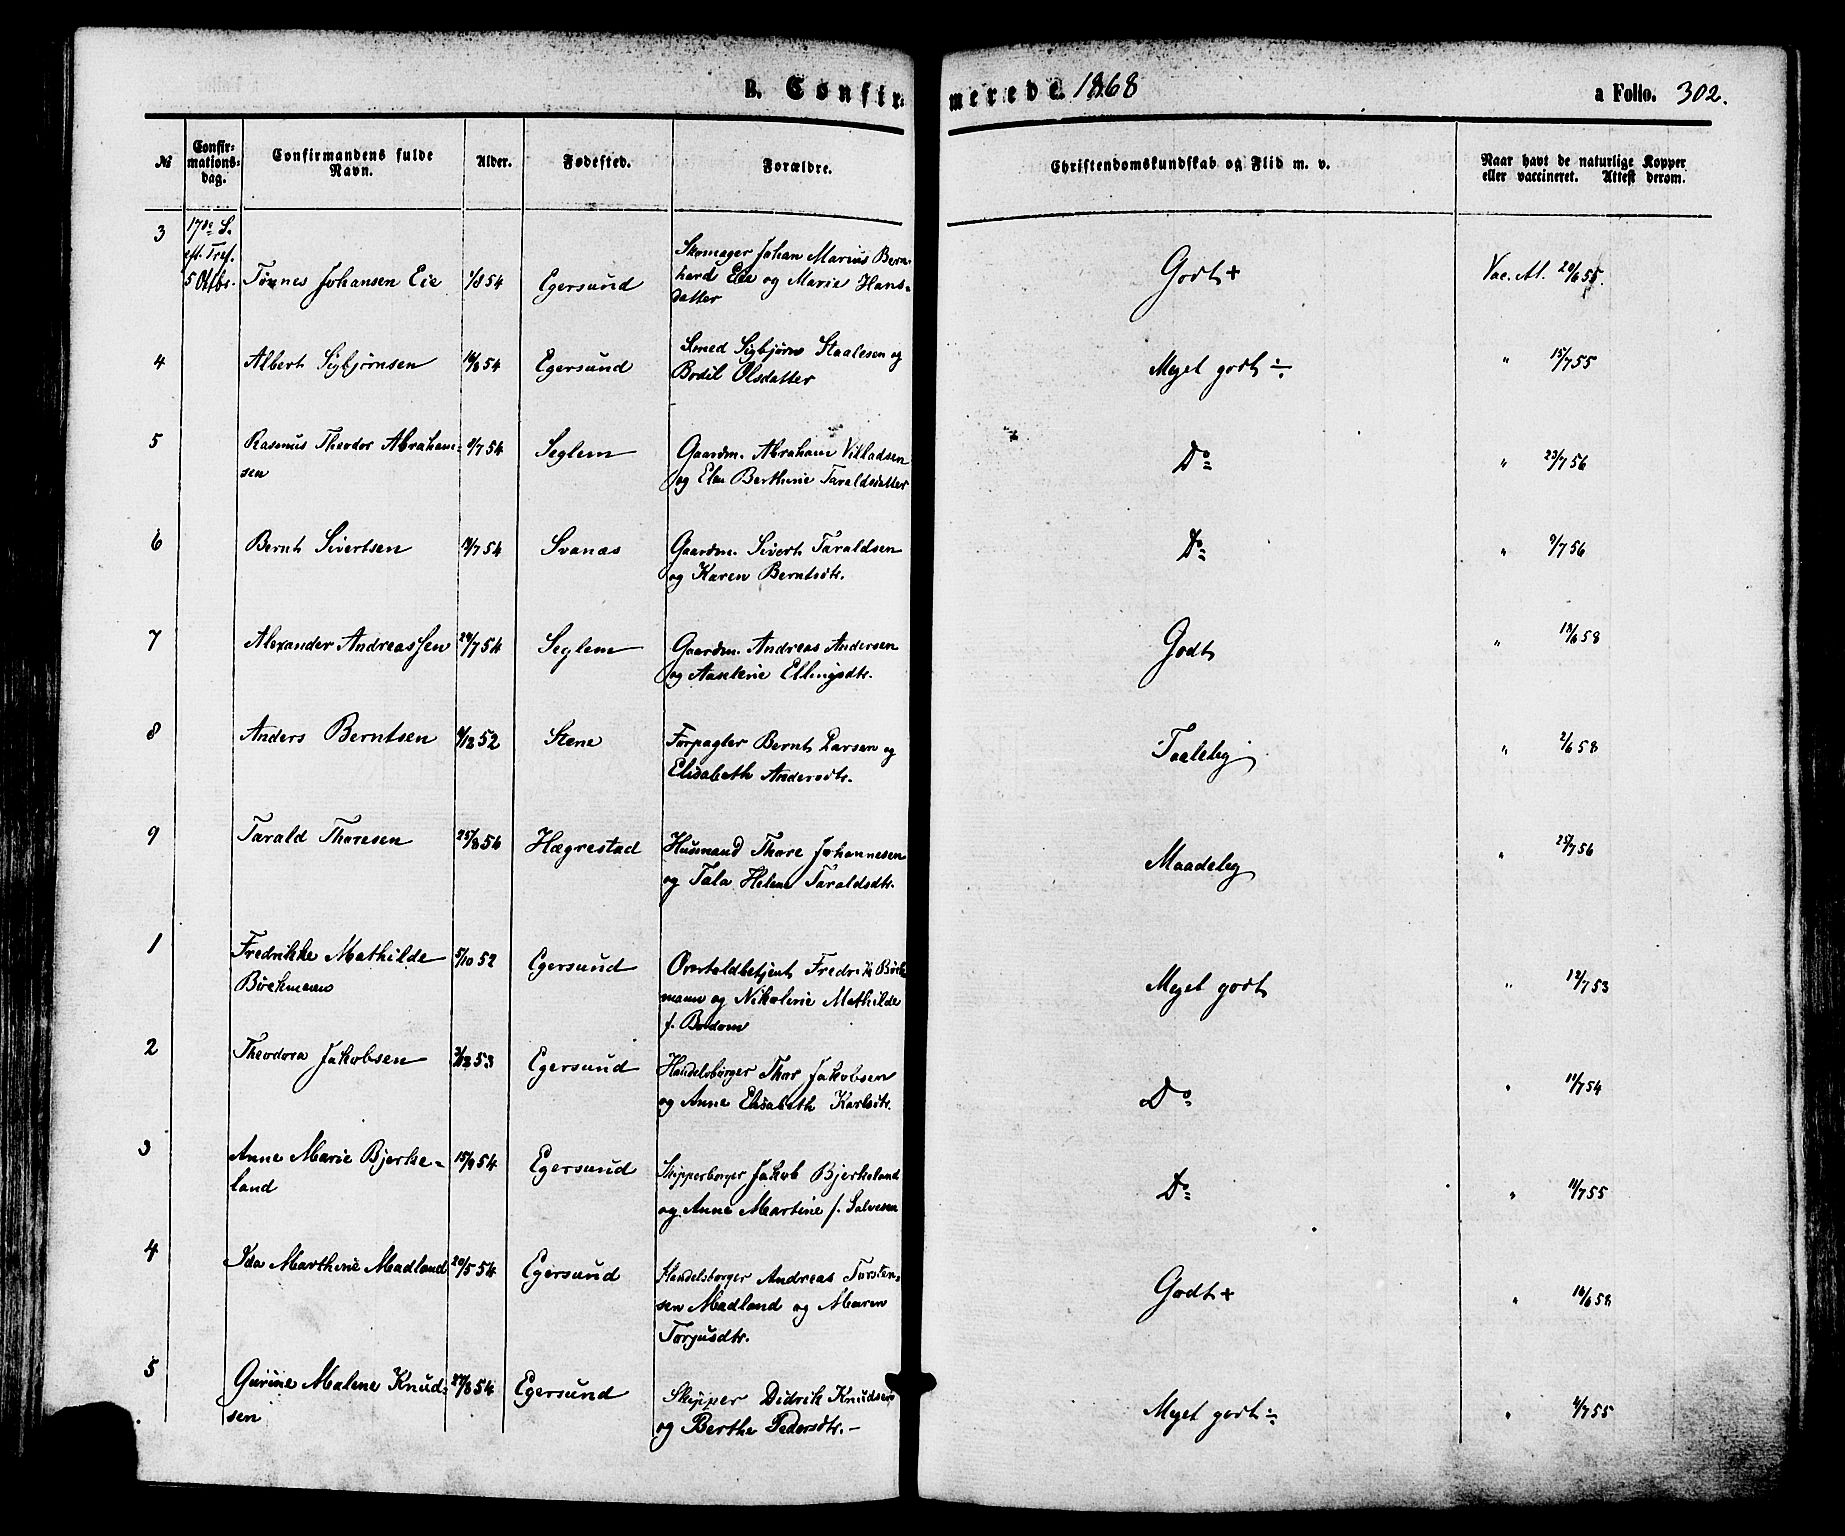 B. Confirmerede. 1868
a Folio. 302.
№
Confir-
mations-
dag.
Confirmandens fulde
Navn.
Alder.
Fødested.
Forældre.
Christendomskundskab og Flid m. v.
Naar havt de naturlige Kopper
eller vaccineret. Attest derom.
3
17de S.
eft. Tref.
5 Oktbr.
Tønnes Johansen Eie
1/8 54
Egersund
Skomager Johan Marius Bern-
hard Eie og Marie Hans-
datter
Godt +
Vac. At. 20/6 55.
4
Albert Sigbjørnsen
Egersund
Smed Sigbjørn Staalesen og
Bodil Olsdatter
Meget godt ÷
" 15/7 55
5
Rasmus Theodor Abraham-
sen
Seglem
Gaardm. Abraham Villadsen
og Elen Berthine Taraldsdatter
Do
" 23/7 56
6
Bernt Sivertsen
Svanas
Gaardm. Sivert Taraldsen
og Karen Berntsdtr.
Do
" 9/7 56
7
Alexander Andreassen
29/7 54
Seglem
Gaardm. Andreas Andersen
og Aaseline Ellingsdtr.
Godt
" 13/6 58
8
Anders Berntsen
Stene
Forpagter Bernt Larsen og
Elisabeth Andersdtr.
Taaleleg
" 2/6 58
9
Tarald Thoresen
25/8 54
Hægrestad
Husmand Thore Johannesen
og Tala Helene Taraldsdtr.
Maadeleg
" 25/7 56
1
Fredrikke Mathilde
Böckmann
5/10 52
Egersund
Overtoldbetjent Fredrik Böck-
mann og Nikoline Mathilde
f. Bodom
Meget godt
" 12/7 53
2
Theodora Jakobsen
3/12 53
Egersund
Handelsborger Thor Jakobsen
og Anne Elisabeth Karlsdtr.
Do
" 11/7 54
3
Anne Marie Bjerke-
land
15/4 54
Egersund
Skipperborger Jakob Bjerkeland
og Anne Martine f. Salvesen
Do
" 11/7 55
4
Ida Marthine Madland
20/5 54
Egersund
Handelsborger Andreas Torsten-
sen Madland og Maren
Torjusdtr.
Godt +
" 16/6 58
5
Gurine Malene Knud-
sen
27/8 54
Egersund
Skipper Didrik Knudsen
og Berthe Pedersdtr. –
Meget godt ÷
" 11/7 55